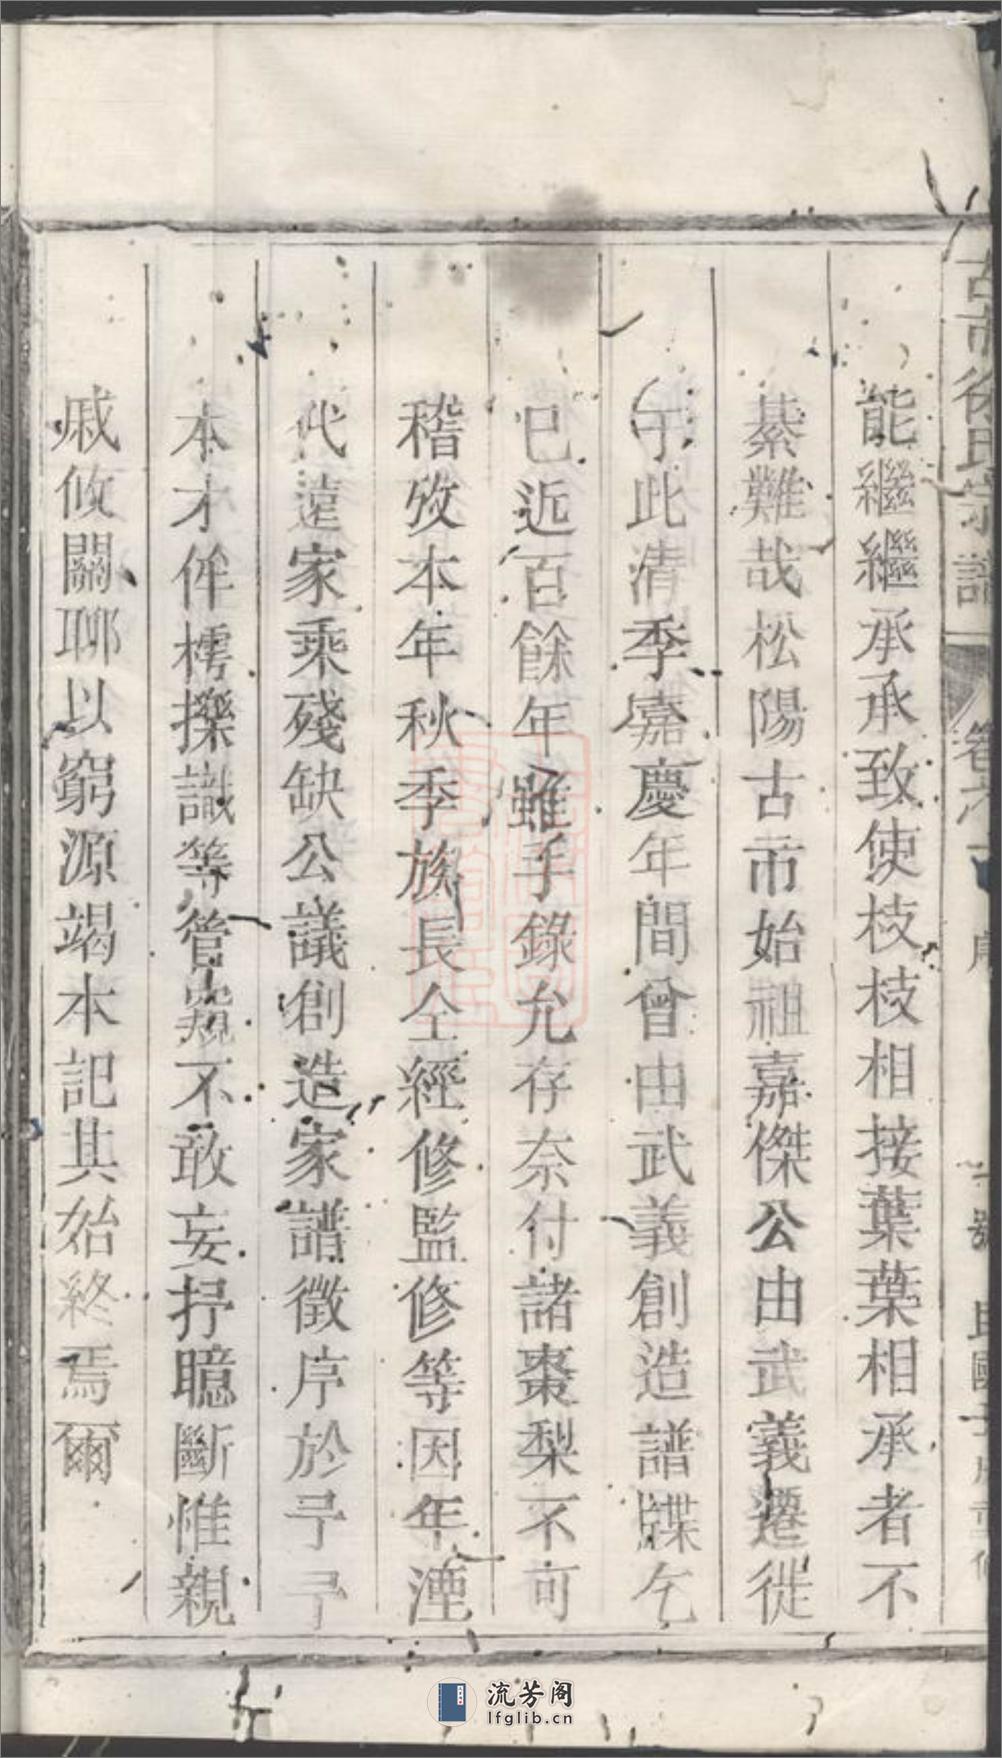 古市徐氏宗譜
能繼繼承承致使枝枝相接葉葉相承者不
綦難哉松陽古市始祖嘉傑公由武義遷徙
于此清季嘉慶年間曾由武義創造譜牒乞
巳近百餘年雖手錄允存奈付諸棗梨不可
稽攷本年秋季族長仝經修監修等因年湮
代遠家乘殘缺公議創造家譜徵序於予予
本才侔樗擽識等管窺不敢妄抒臆斷惟親
戚攸關聊以窮源竭本記其始終焉爾
流芳阁
lfglib.cn